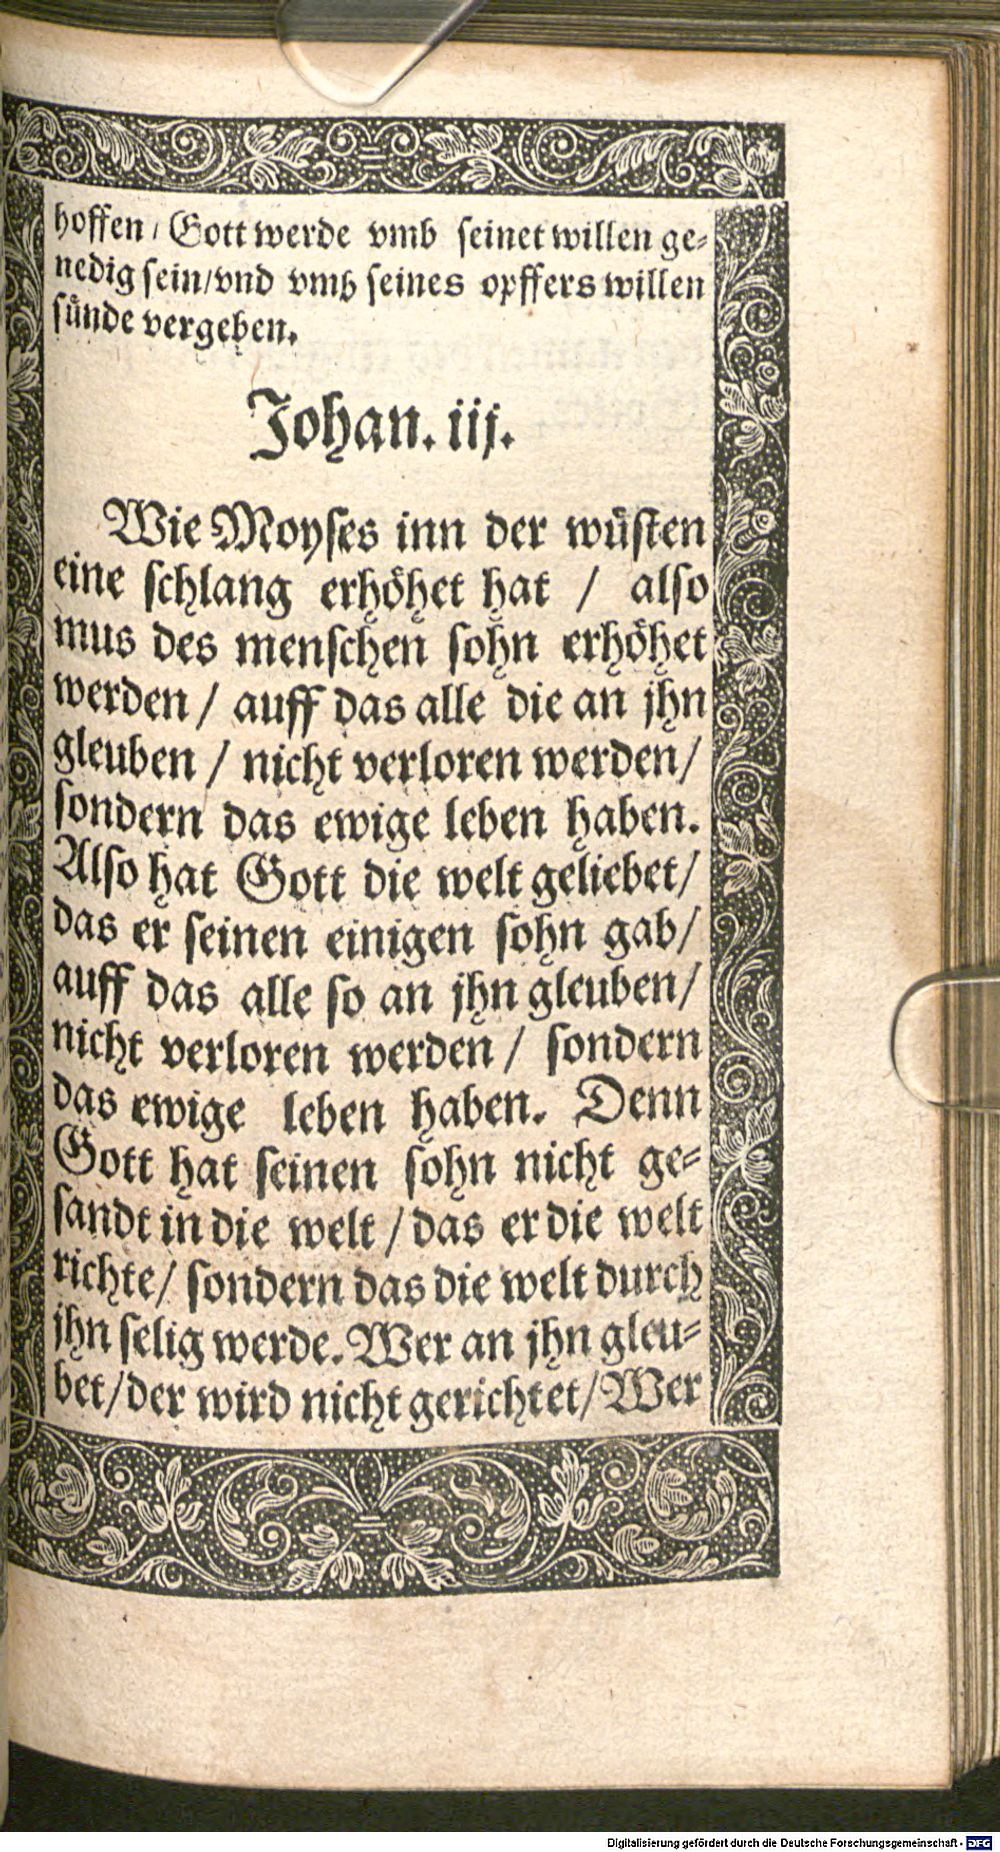 hoffen / Gott werde vmb seinet willen ge⸗
nedig sein/vnd vmb seines opffers willen
sünde vergeben.
Johan. iij.
Wie Moyses inn der wüsten
eine schlang erhöhet hat / also
mus des menschen sohn erhöhet
werden / auff das alle die an jhn
gleuben / nicht verloren werden/
sondern das ewige leben haben.
Also hat Gott die welt geliebet/
das er seinen einigen sohn gab/
auff das alle so an jhn gleuben/
nicht verloren werden / sondern
das ewige leben haben. Denn
Gott hat seinen sohn nicht ge⸗
sandt in die welt / das er die welt
richte/ sondern das die welt durch
jhn selig werde. Wer an jhn gleu⸗
bet/der wird nicht gerichtet/Wer
Digitalisierung gefördert durch die Deutsche Forschungsgemeinschaft - DFG